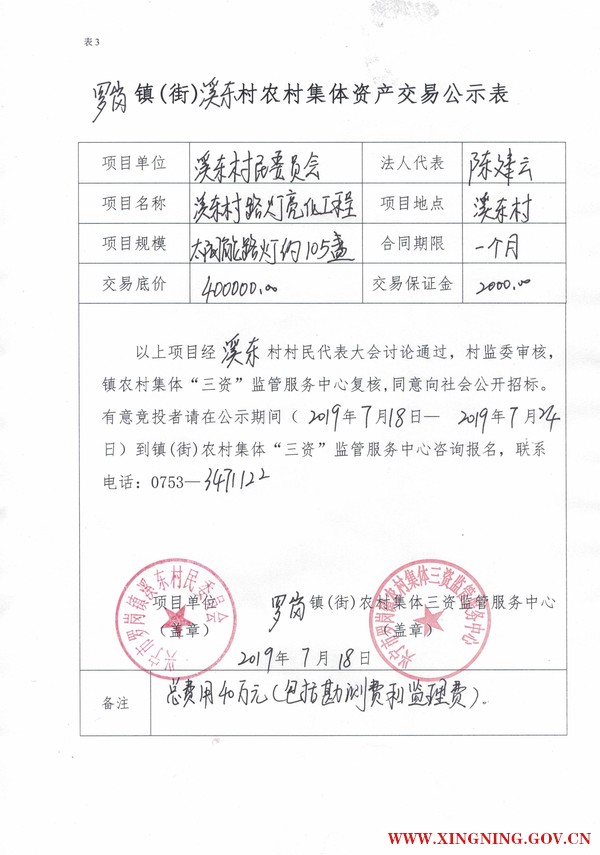 表3
罗岗镇(街)溪东村农村集体资产交易公示表
项目单位 溪东村民委员会 法人代表 陈建云
项目名称 溪东村路灯亮化工程 项目地点 溪东村
项目规模 太阳能路灯约105盏 合同期限 一个月
交易底价 400000.00 交易保证金 2000.00
以上项目经溪东村村民代表大会讨论通过，村监委审核，
镇农村集体“三资”监管服务中心复核，同意向社会公开招标。
有意竞投者请在公示期间（2019年7月18日—2019年7月24
日）到镇(街)农村集体“三资”监管服务中心咨询报名，联系
电话：0753—3471122
兴宁市罗岗镇溪东村民委员会
兴宁市罗岗镇农村集体三资监管服务中心
项目单位 罗岗镇(街)农村集体三资监管服务中心
（盖章） （盖章）
2019年7月18日
备注 总费用40万元(包括勘测费和监理费)。
WWW.XINGNING.GOV.CN